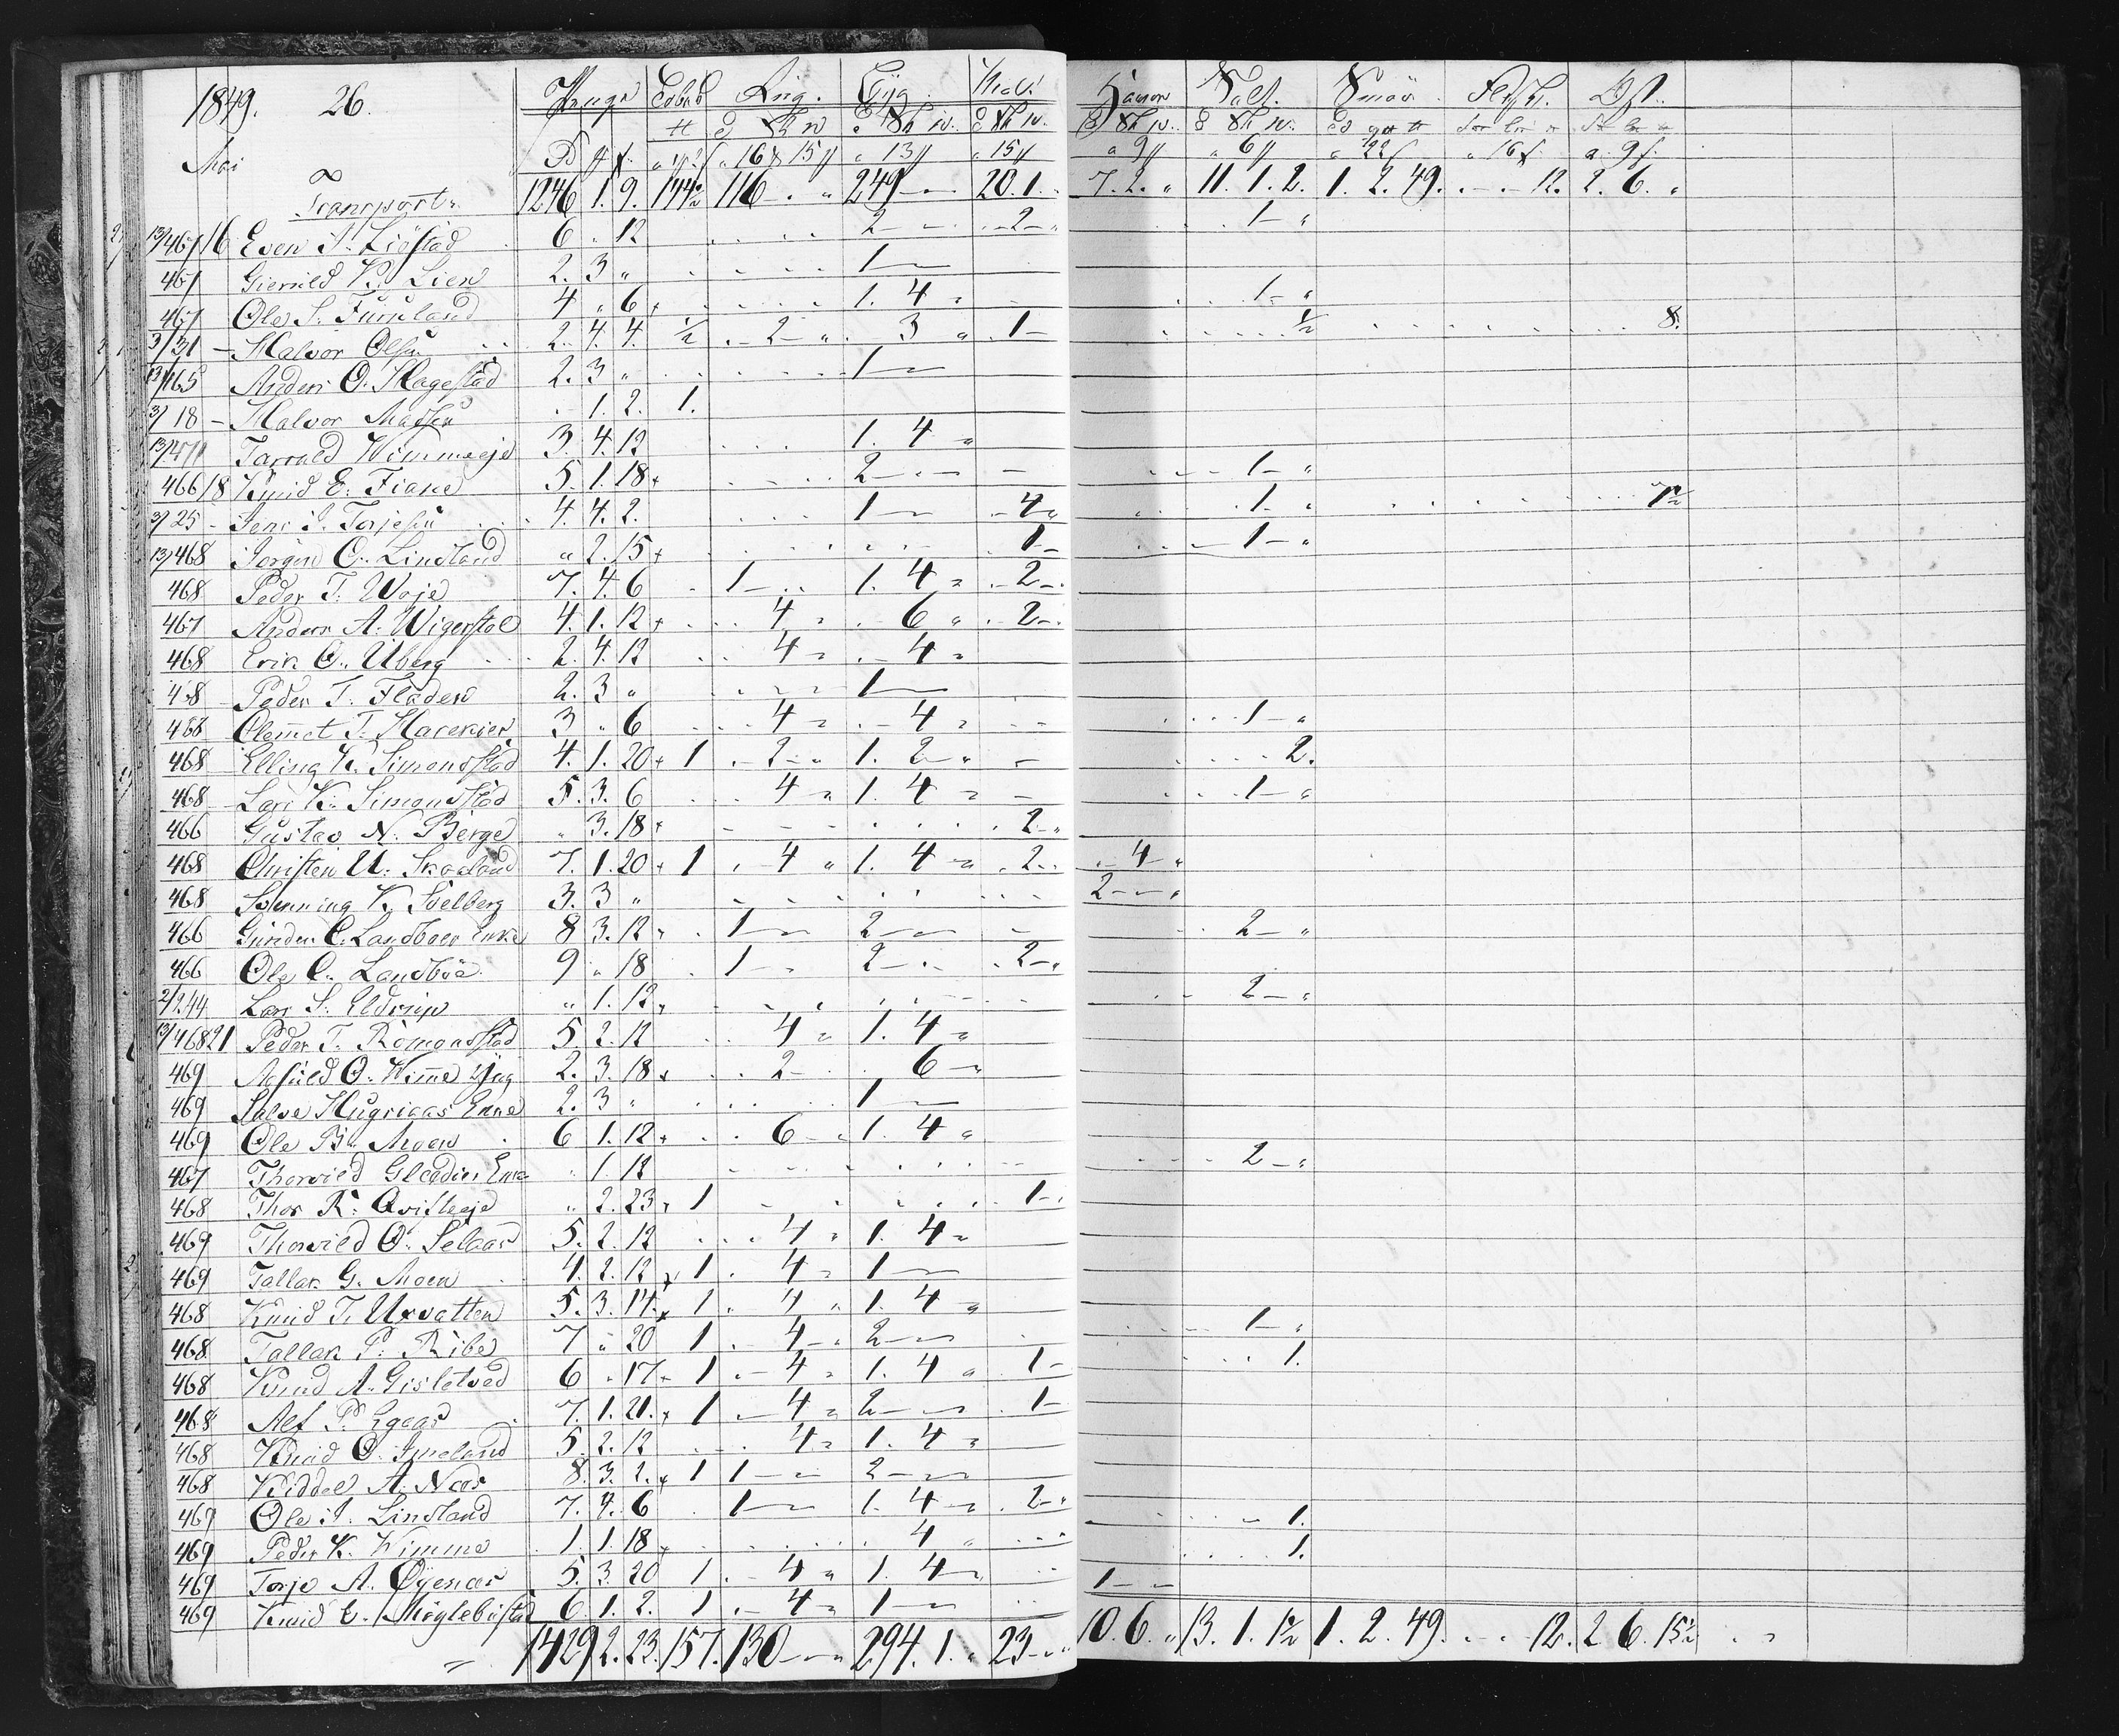 1849. 26. Penge Tobak Rug. Byg. Hav. Hamp Salt. Smör. Flesk. Ost.
Mai
Transport 1246 1. 9. 144½ 116 249 20. 1. 7. 2. 11. 1. 2. 1. 2. 49. 12. 2. 6.
13/467/16 Even J. Liöstad 6 12 2 2 1
467 Gierulf K. Lien 2. 3 1
467 Ole S. Furuland 4 6 1. 4 1
3/31 Halvor Olsen 2. 4. 4. ½ 2 3 1 ½ 8.
13/465 Anders O. Hagestad 2. 3 1
3/18 Halvor Madsen 1. 2. 1.
13/471 Tarrald Wimmeeje 3. 4. 12 1. 4
466/8 Knud E. Fiane 5. 1. 18 2 1
3/25 Jens J. Torjesen 4. 4. 2. 1 4 1 1½
13/468 Jörgen O. Linsland 2. 15 1 1
468 Peder T. Woje 7. 4. 6 1 1. 4 2
467 Anders A. Wigerstøl 4. 1. 12 4 6 2
468 Erik O. Uberg 2. 4. 12 4 4
468 Peder T. Fladen 2. 3 1
468 Clemet T. 3 6 4 4 1
468 Elling K. Simonsstad 4. 1. 20 1 2 1. 2 2.
468 Lars K. Simonsstad 5. 3. 6 4 1. 4 1
466 Gustav N. Berge 3. 18 2
468 Christen U. Skaaland 7. 1. 20 1 4 1. 4 2 4
468 Svenning K. Selberg 3. 3 2
466 Gunder C. Landboes Enke 8 3. 12 1 2 2
466 Ole C. Landböe 9 18 1 2 2
2/244 Lars S. Eldrup 1. 12 2
13/468 21 Peder T. Römonsstad 5. 2. 12 4 1. 4
469 Asfuld O. Wimme Yng 2. 3. 18 2 6
469 Salve Hugriaas Enke 2. 3 1
469 Ole B. Moen 6 1. 12 6 1. 4
467 Thorvild Enke 1. 12 2
468 Thor K. Qvisleeje 2. 23 1 1
469 Thorvild O. Selaas 5. 2. 12 4 1. 4
469 Tallak G. Moen 4. 2. 12 1 4 1
468 Knud T. Uxvatten 5. 3. 14 1 4 1. 4
468 Tallak P. Ribe 7 20 1 4 2 1
468 Knud A. Gisletved 6 17 1 4 1. 4 1 1.
468 Alf P. Egeas 7. 1. 21 1 4 2 1
468 Knud O. Smeland 5. 2. 12 4 1. 4
468 Kiddel A. Næs 8. 3. 2. 1 1 2
469 Ole J. Linsland 7. 4. 6 1 1. 4 2 1.
469 Peder K. Wimme 1. 1. 18 4 1.
469 Torje A. Öyenæs 5. 3. 20 1 4 1. 4 1
469 Knud E. Möglebustad 6 1. 2. 1 4 1
1429 2. 23. 157. 130 294. 1. 23 10. 6. 13. 1. 1½ 1. 2. 49. 12. 2 6. 15½